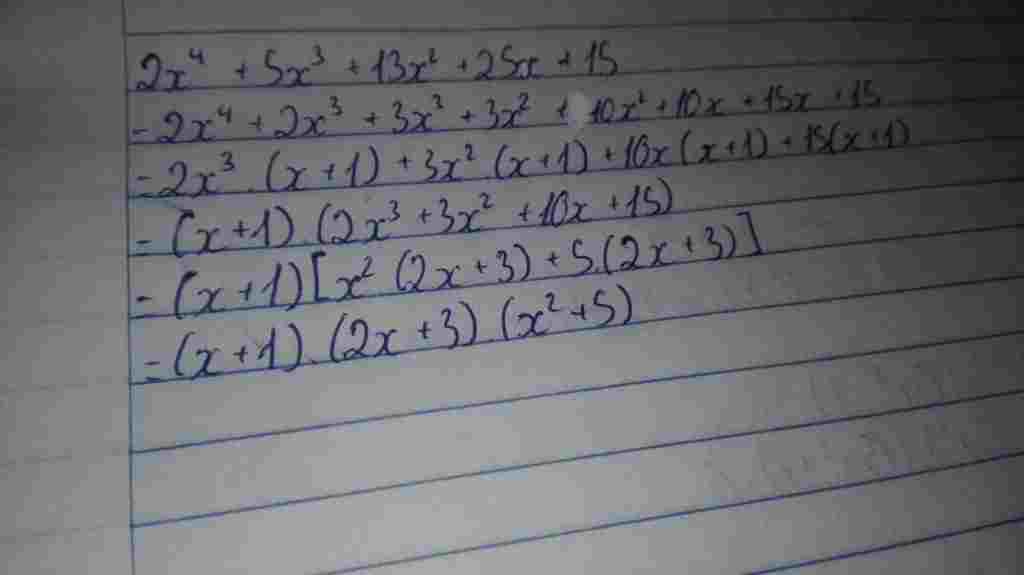 2x⁴ + 5x³ + 13x² + 25x + 15
= 2x⁴ + 2x³ + 3x³ + 3x² + 10x² + 10x + 15x + 15
= 2x³ . (x + 1) + 3x² . (x + 1) + 10x (x + 1) + 15(x + 1)
= (x + 1) . (2x³ + 3x² + 10x + 15)
= (x + 1) [x² (2x + 3) + 5.(2x + 3)]
= (x + 1) . (2x + 3) (x² + 5)